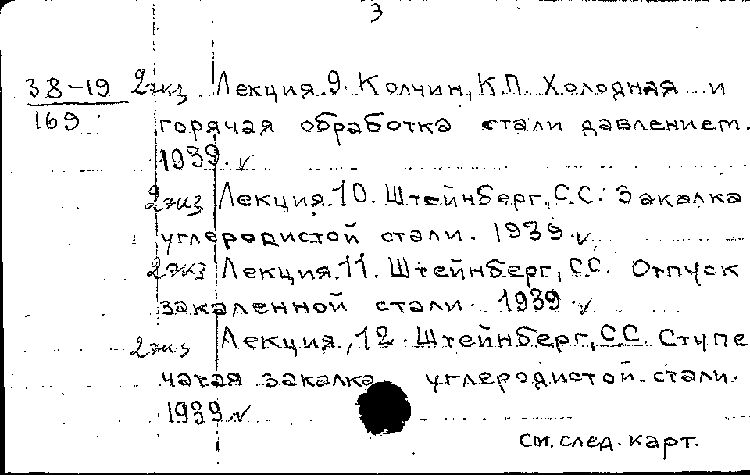 3
38-19 2экз Лекция 9. Колчин, К.П. Холодная и
169 горячая обработка стали давлением.
1939. ✓
2экз Лекция 10. Штейнберг, С.С. Закалка
углеродистой стали. 1939 ✓
2экз Лекция 11. Штейнберг, С.С. Отпуск
закаленной стали. 1939 ✓
2экз Лекция 12. Штейнберг, С.С. Ступе
чатая закалка углеродистой стали.
1939 ✓
см. след. карт.